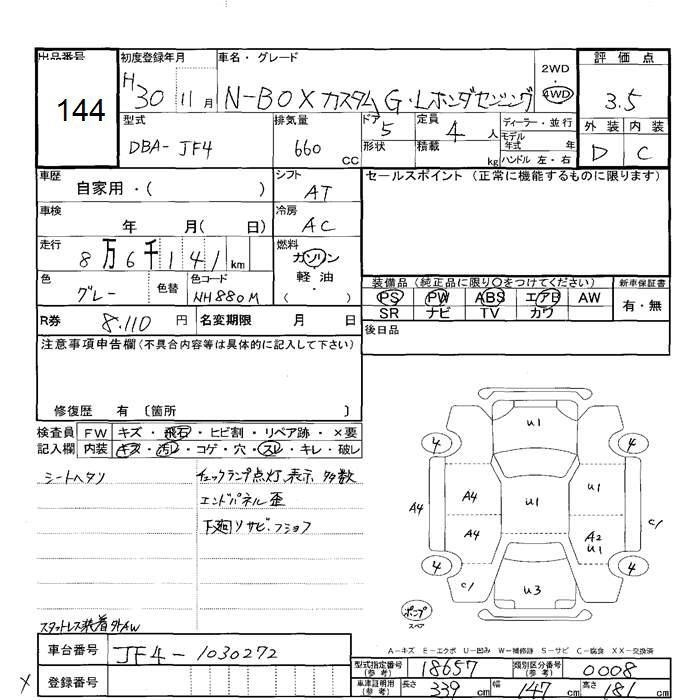 出品番号 初度登録年月 車名・グレード 評価点
144
H30 11月 N-BOXカスタム G・Lホンダセンシング 2WD 4WD 3.5
外装 内装
D C
型式 排気量 ドア 定員 ディーラー・並行
DBA-JF4 660 CC 5 4人
形状 積載 kg モデル年式 年
ハンドル 左・右
車歴 シフト セールスポイント (正常に機能するものに限ります)
自家用・( ) AT
車検 冷房
年 月( 日) AC
走行 燃料
8万6千141km ガソリン
軽油
・( )
色 色替 色コード
グレー NH880M
装備品 (純正品に限り○をつけてください) 新車保証書
PS PW ABS エアB AW 有・無
SR ナビ TV カワ
R券 8.110円 名変期限 月 日
後日品
注意事項申告欄 (不具合内容等は具体的に記入して下さい)
修復歴 有 〔箇所 〕
検査員 FW キズ・飛石・ヒビ割・リペア跡・×要
記入欄 内装 キズ・汚レ・コゲ・穴・スレ・キレ・破レ
シートヘタリ チェックランプ点灯、表示 多数
エンドパネル歪
下廻りサビ・フショク
スタットレス装着
U1
4 4
A4 U1 U1
A4 A4 A2 U1 C/
4 4
C/ U3
ポンプ
スペア
A-キズ E-エクボ U-凹み W-補修跡 S-サビ C-腐食 XX-交換済
車台番号 JF4-1030272
型式指定番号 (参考) 18657 類別区分番号 (参考) 0008
× 登録番号
車庫証明用 (参考) 長さ 339cm 幅 147cm 高さ 181cm